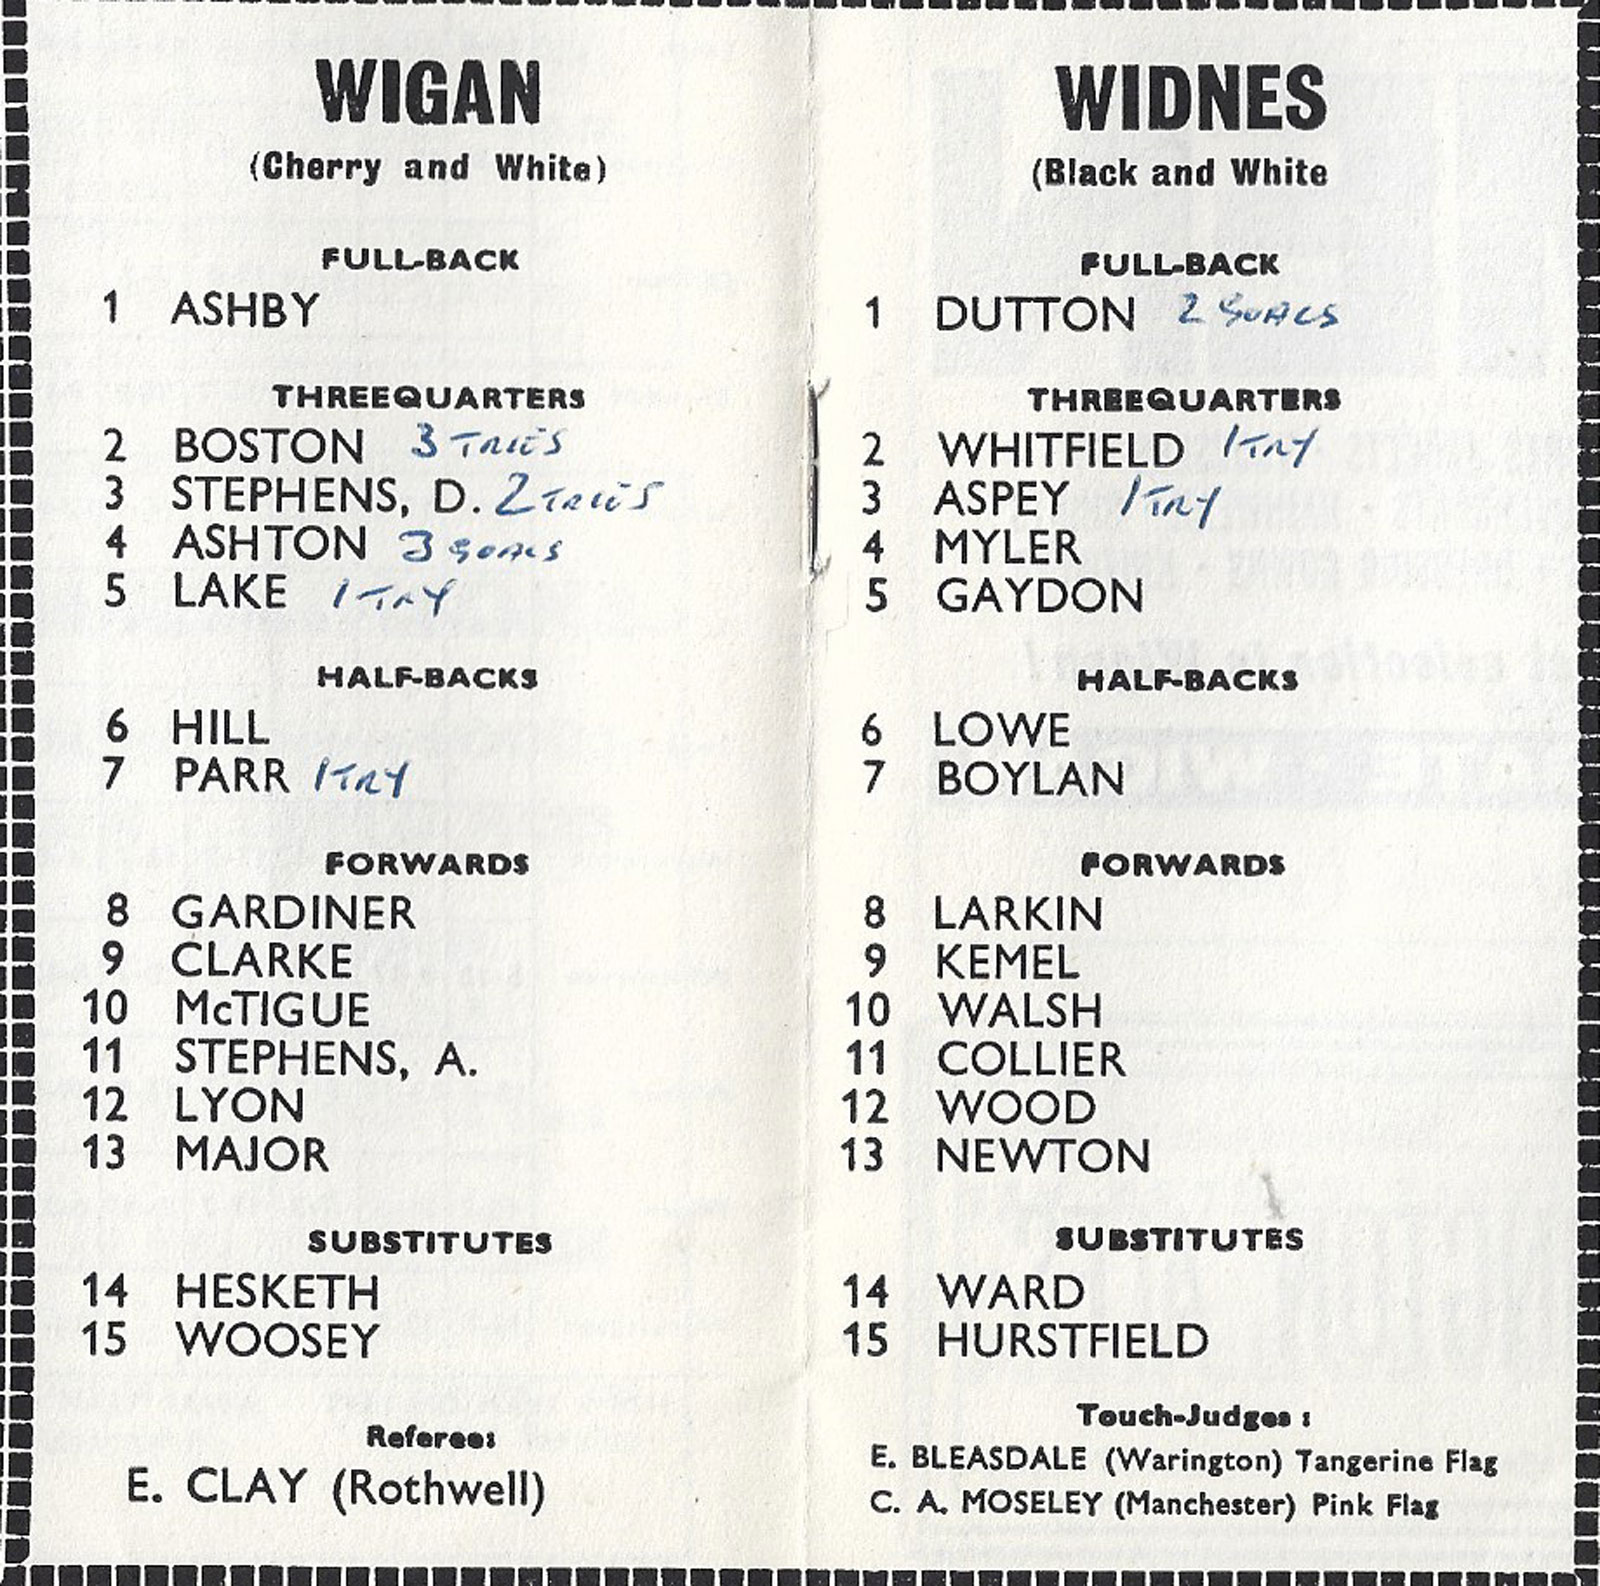 WIGAN
(Cherry and White)
FULL-BACK
1 ASHBY
THREEQUARTERS
2 BOSTON 3 TRIES
3 STEPHENS, D. 2 TRIES
4 ASHTON 3 GOALS
5 LAKE 1 TRY
HALF-BACKS
6 HILL
7 PARR 1 TRY
FORWARDS
8 GARDINER
9 CLARKE
10 McTIGUE
11 STEPHENS, A.
12 LYON
13 MAJOR
SUBSTITUTES
14 HESKETH
15 WOOSEY
Referee:
E. CLAY (Rothwell)
WIDNES
(Black and White
FULL-BACK
1 DUTTON 2 GOALS
THREEQUARTERS
2 WHITFIELD 1 TRY
3 ASPEY 1 TRY
4 MYLER
5 GAYDON
HALF-BACKS
6 LOWE
7 BOYLAN
FORWARDS
8 LARKIN
9 KEMEL
10 WALSH
11 COLLIER
12 WOOD
13 NEWTON
SUBSTITUTES
14 WARD
15 HURSTFIELD
Touch-Judges :
E. BLEASDALE (Warington) Tangerine Flag
C. A. MOSELEY (Manchester) Pink Flag